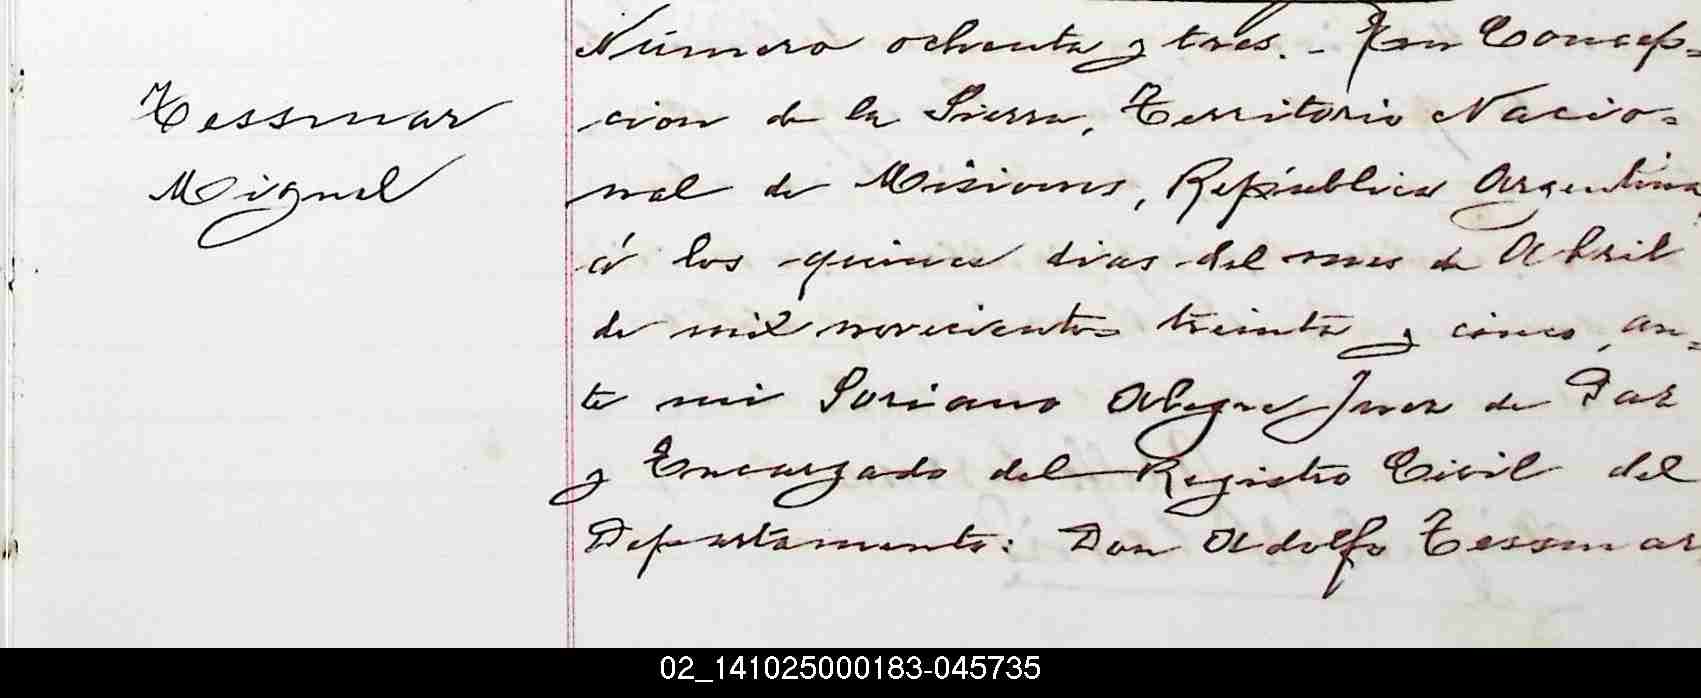 Tessmar
Miguel
Número ochenta y tres. - En Concep=
cion de la Sierra, Territorio Nacio=
nal de Misiones, República Argentina,
á los quince dias del mes de Abril
de mil novecientos treinta y cinco, an=
te mi Soriano Alegre Juez de Paz
y Encargado del Registro Civil del
Departamento: Don Adolfo Tessmar
02_141025000183-045735